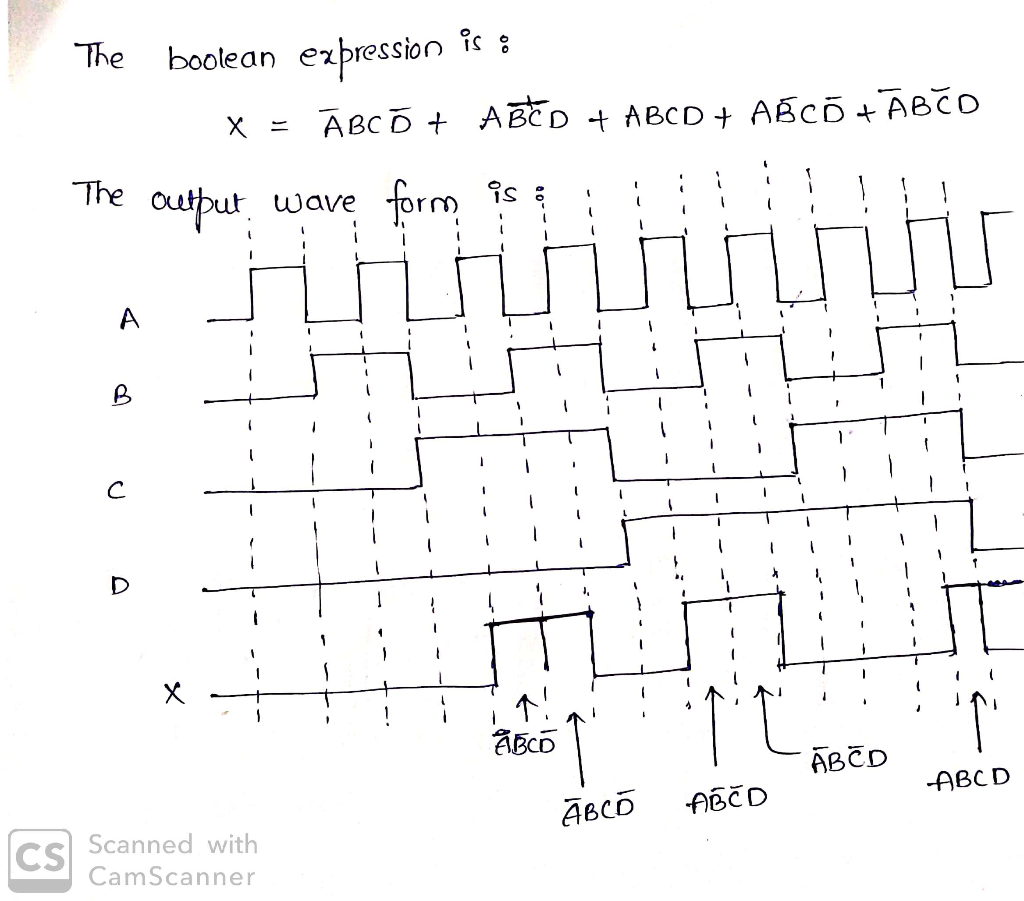 The boolean expression is :
X = A̅BCD̅ + AB̅C̅D + ABCD + AB̅CD̅ + A̅BC̅D
The output wave form is :
A
B
C
D
X
AB̅CD̅
A̅BC̅D
ABCD
A̅BCD̅
AB̅C̅D
CS Scanned with
CamScanner